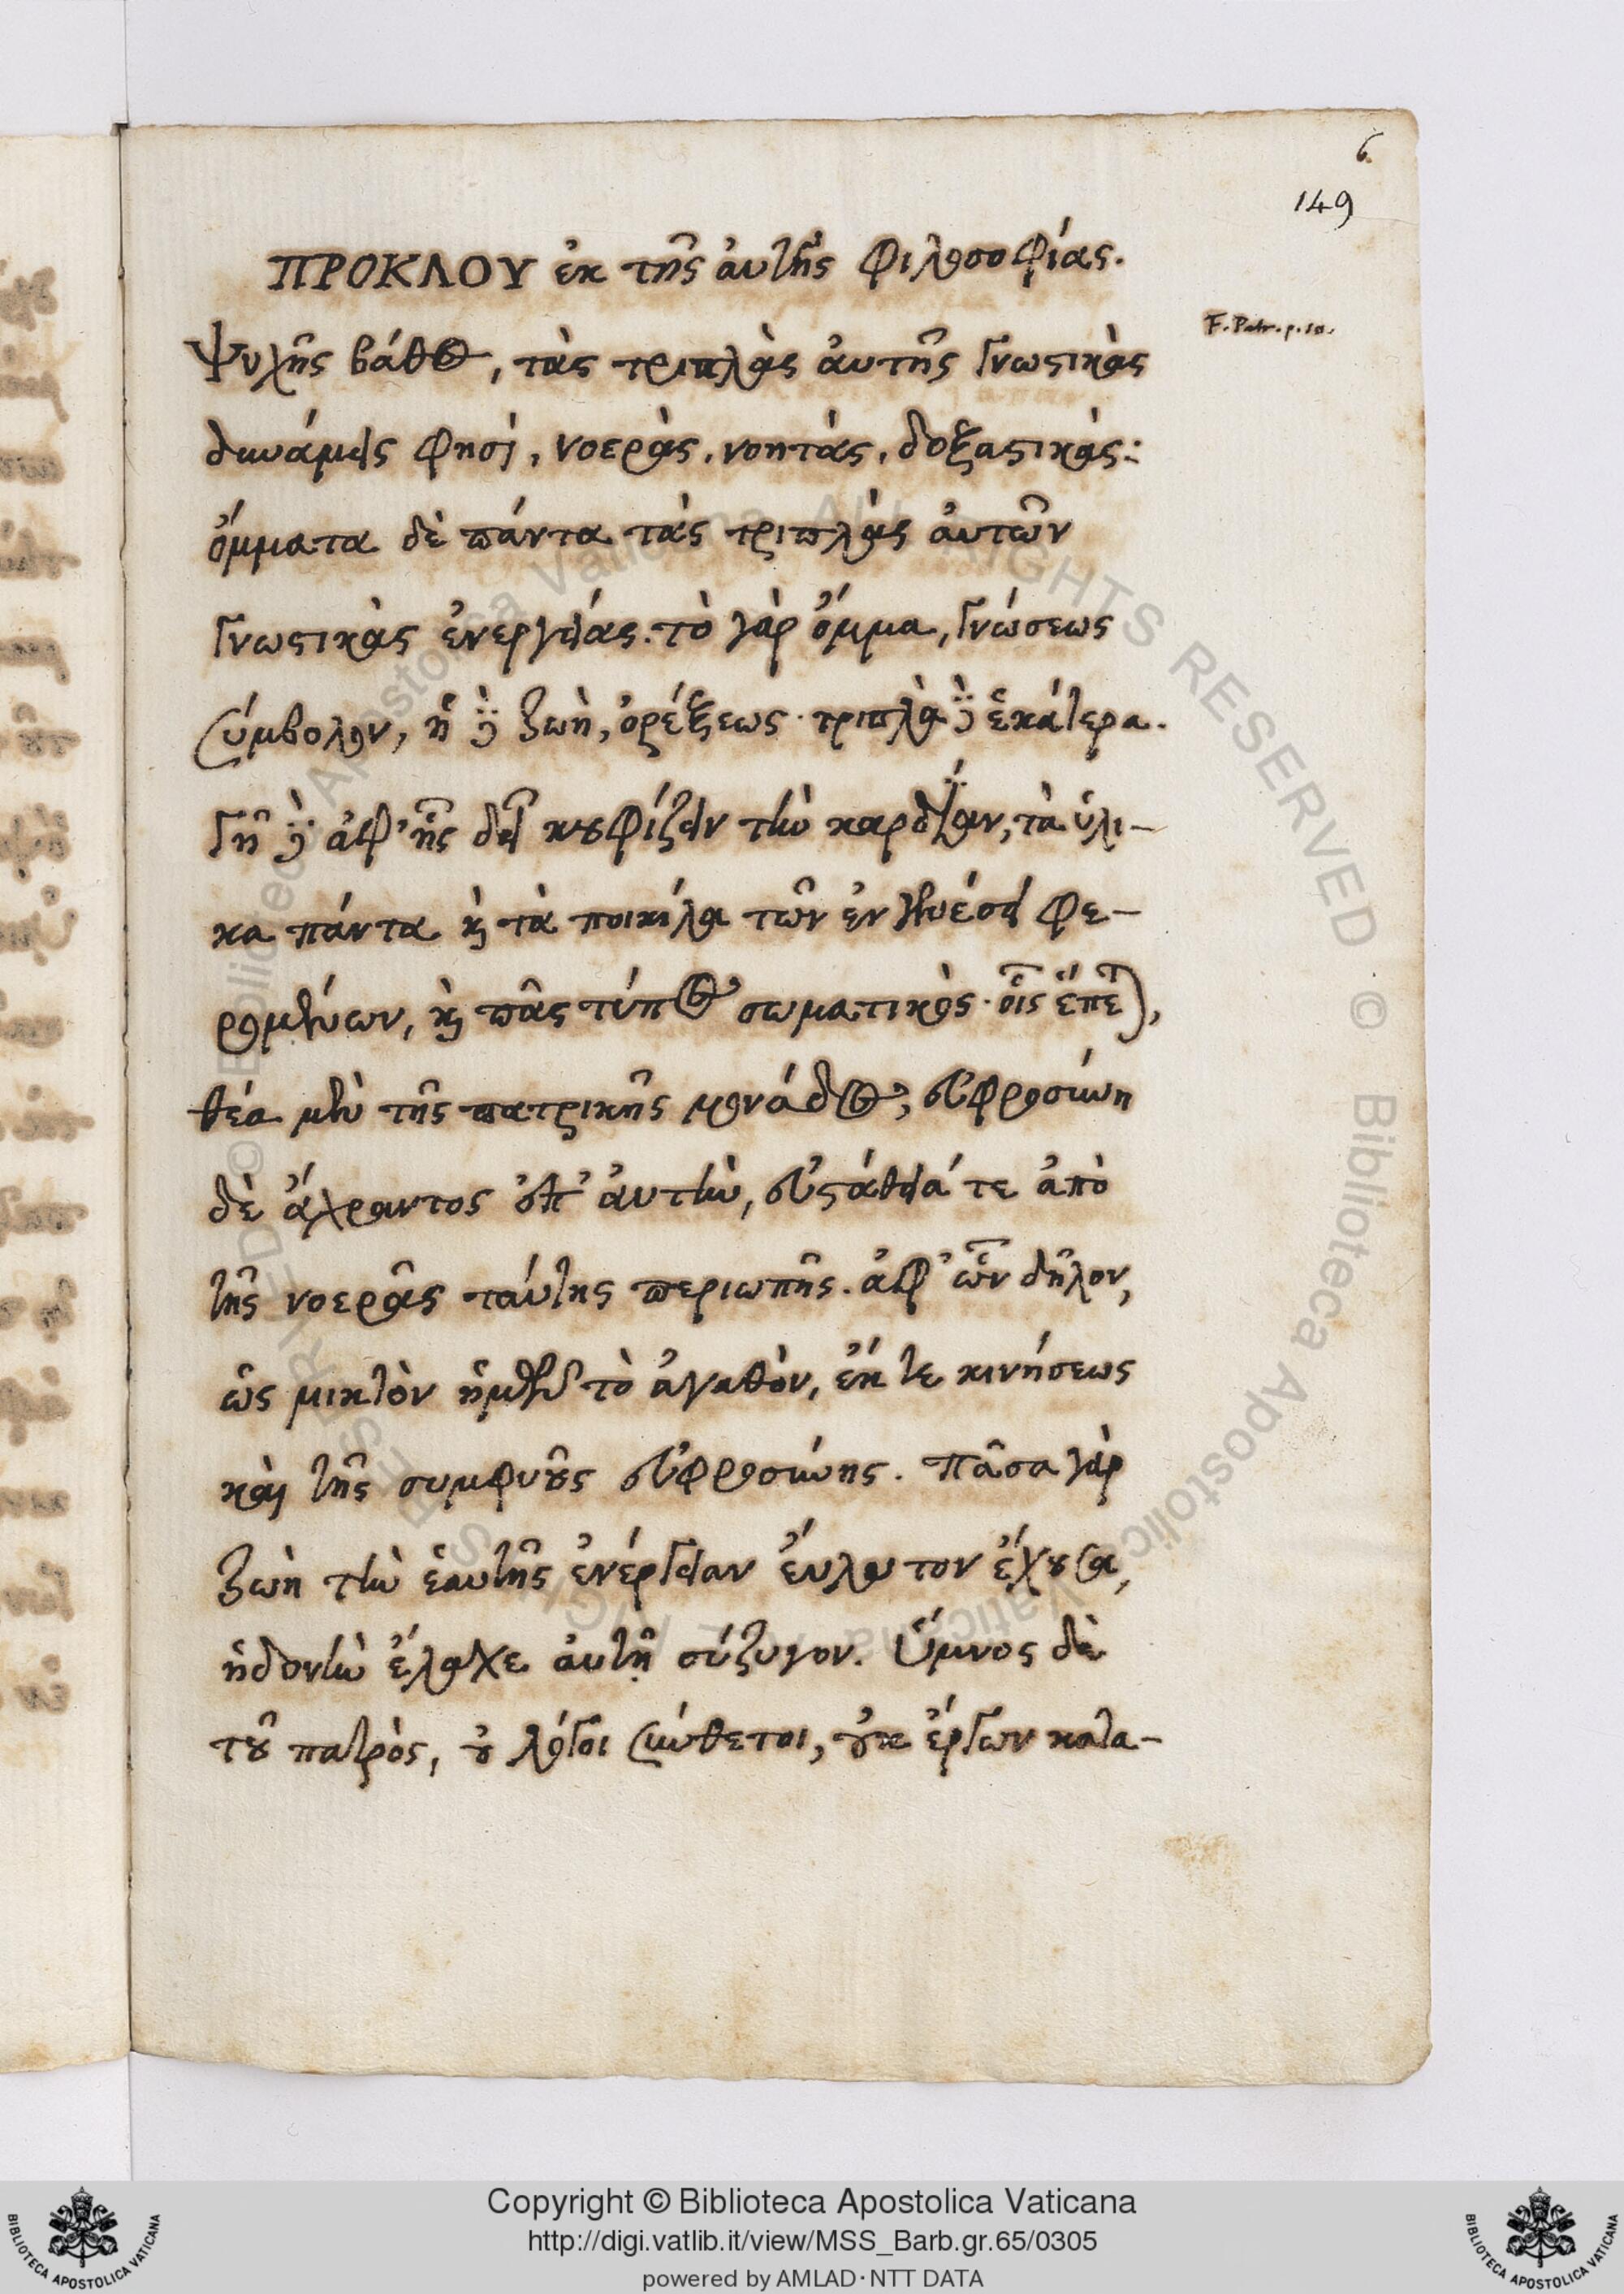 6.
149
ΠΡΟΚΛΟΥ ἐκ τῆς ἀυτῆς φιλοσοφίας.
F. Patr. p. 10.
Ψυχῆς βάθος, τὰς τριπλὰς ἀυτῆς γνωστικὰς
δυνάμεις φησὶ, νοερὰς, νοητάς, δοξαστικάς:
ὄμματα δὲ πάντα τὰς τριπλὰς ἀυτῶν
γνωστικὰς ἐνεργείας. τὸ γὰρ ὄμμα, γνώσεως
σύμβολον, ἡ δὲ ζωὴ, ὀρέξεως. τριπλᾶ δὲ ἑκάτερα.
γῆ δὲ ἀφ’ ἧς δεῖ κουφίζειν τὴν καρδίαν, τὰ ὑλι-
κα πάντα καὶ τὰ ποικίλα τῶν ἐν γενέσει φε-
ρομένων, καὶ πᾶς τύπος σωματικός. οἷς ἕπεται,
θέα μὲν τῆς πατρικῆς μονάδος, εὐφροσύνη
δὲ ἄχραντος ἐπ’ ἀυτὴν, εὐστάθειά τε ἀπὸ
τῆς νοερᾶς ταύτης περιωπῆς. ἀφ’ ὧν δῆλον,
ὡς μικτὸν ἡμῶν τὸ ἀγαθὸν, ἔκ τε κινήσεως
καὶ τῆς συμφυοῦς εὐφροσύνης. Πᾶσα γὰρ
ζωὴ τὴν ἑαυτῆς ἐνέργειαν ἔυλυτον ἔχουσα,
ἡδονὴν ἔλαχε ἀυτῇ σύζυγον. Ὕμνος δὲ
τοῦ πατρὸς, οὐ λόγοι σύνθετοι, οὐκ ἔργων κατα-
Copyright © Biblioteca Apostolica Vaticana
http://digi.vatlib.it/view/MSS_Barb.gr.65/0305
powered by AMLAD·NTT DATA